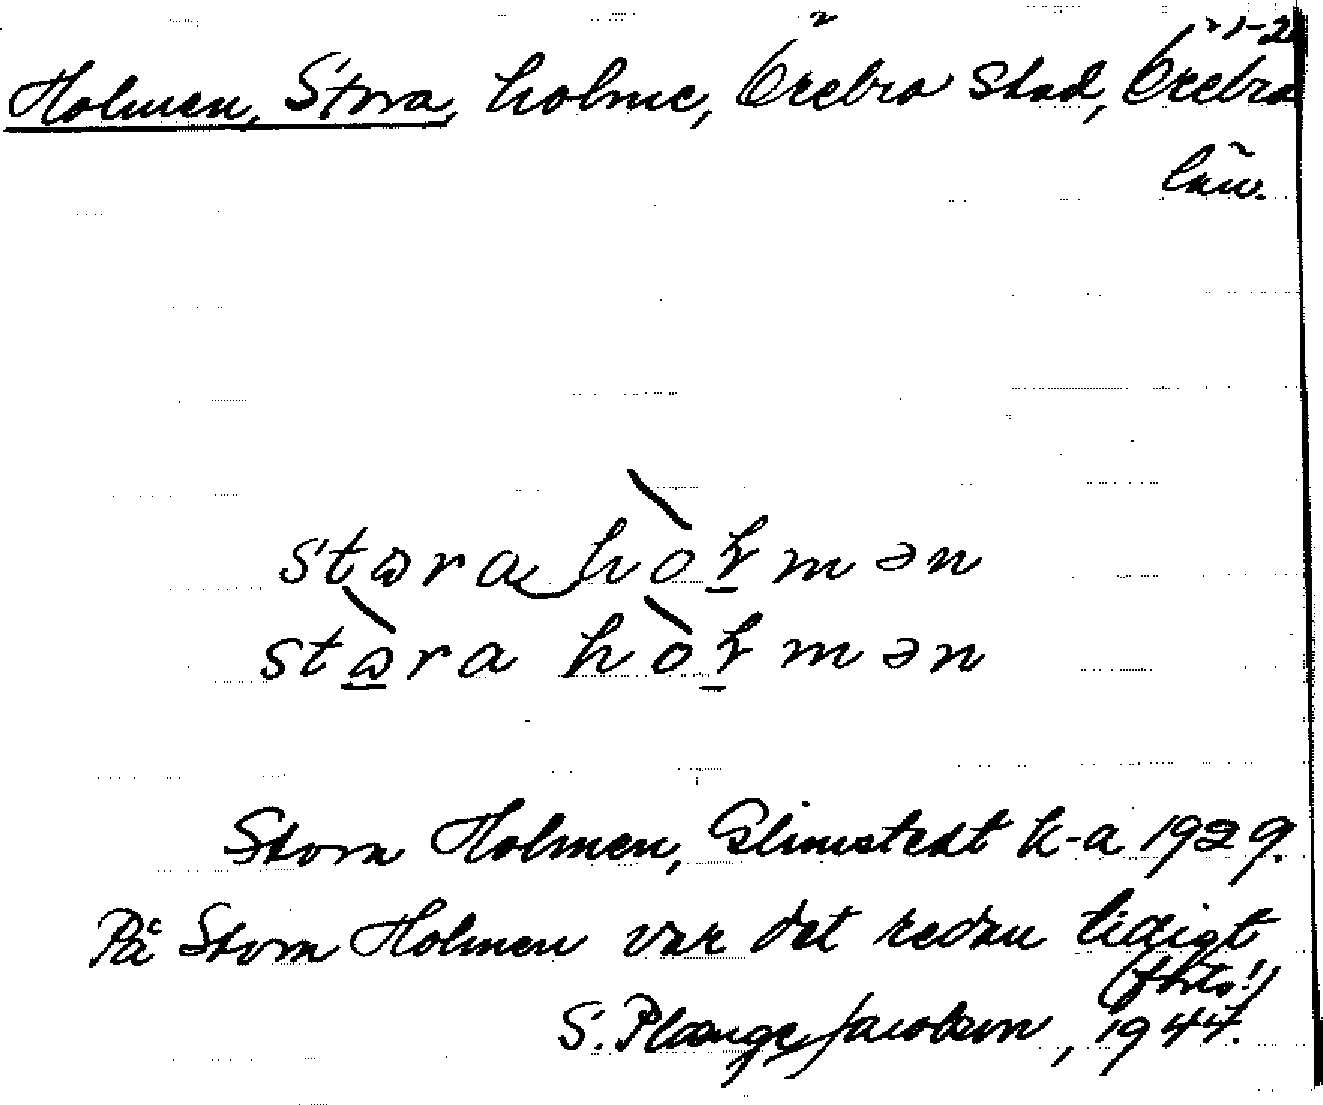 1-2
Holmen, Stora, holme, Örebro stad, Örebro
län.
stɷra hòłmən
stɷ̀ra hòłmən
Stora Holmen, Glimstedt k-a 1929.
På Stora Holmen var det redan tidigt
(forts!)
S. Plaenge Jacobson, 1944.